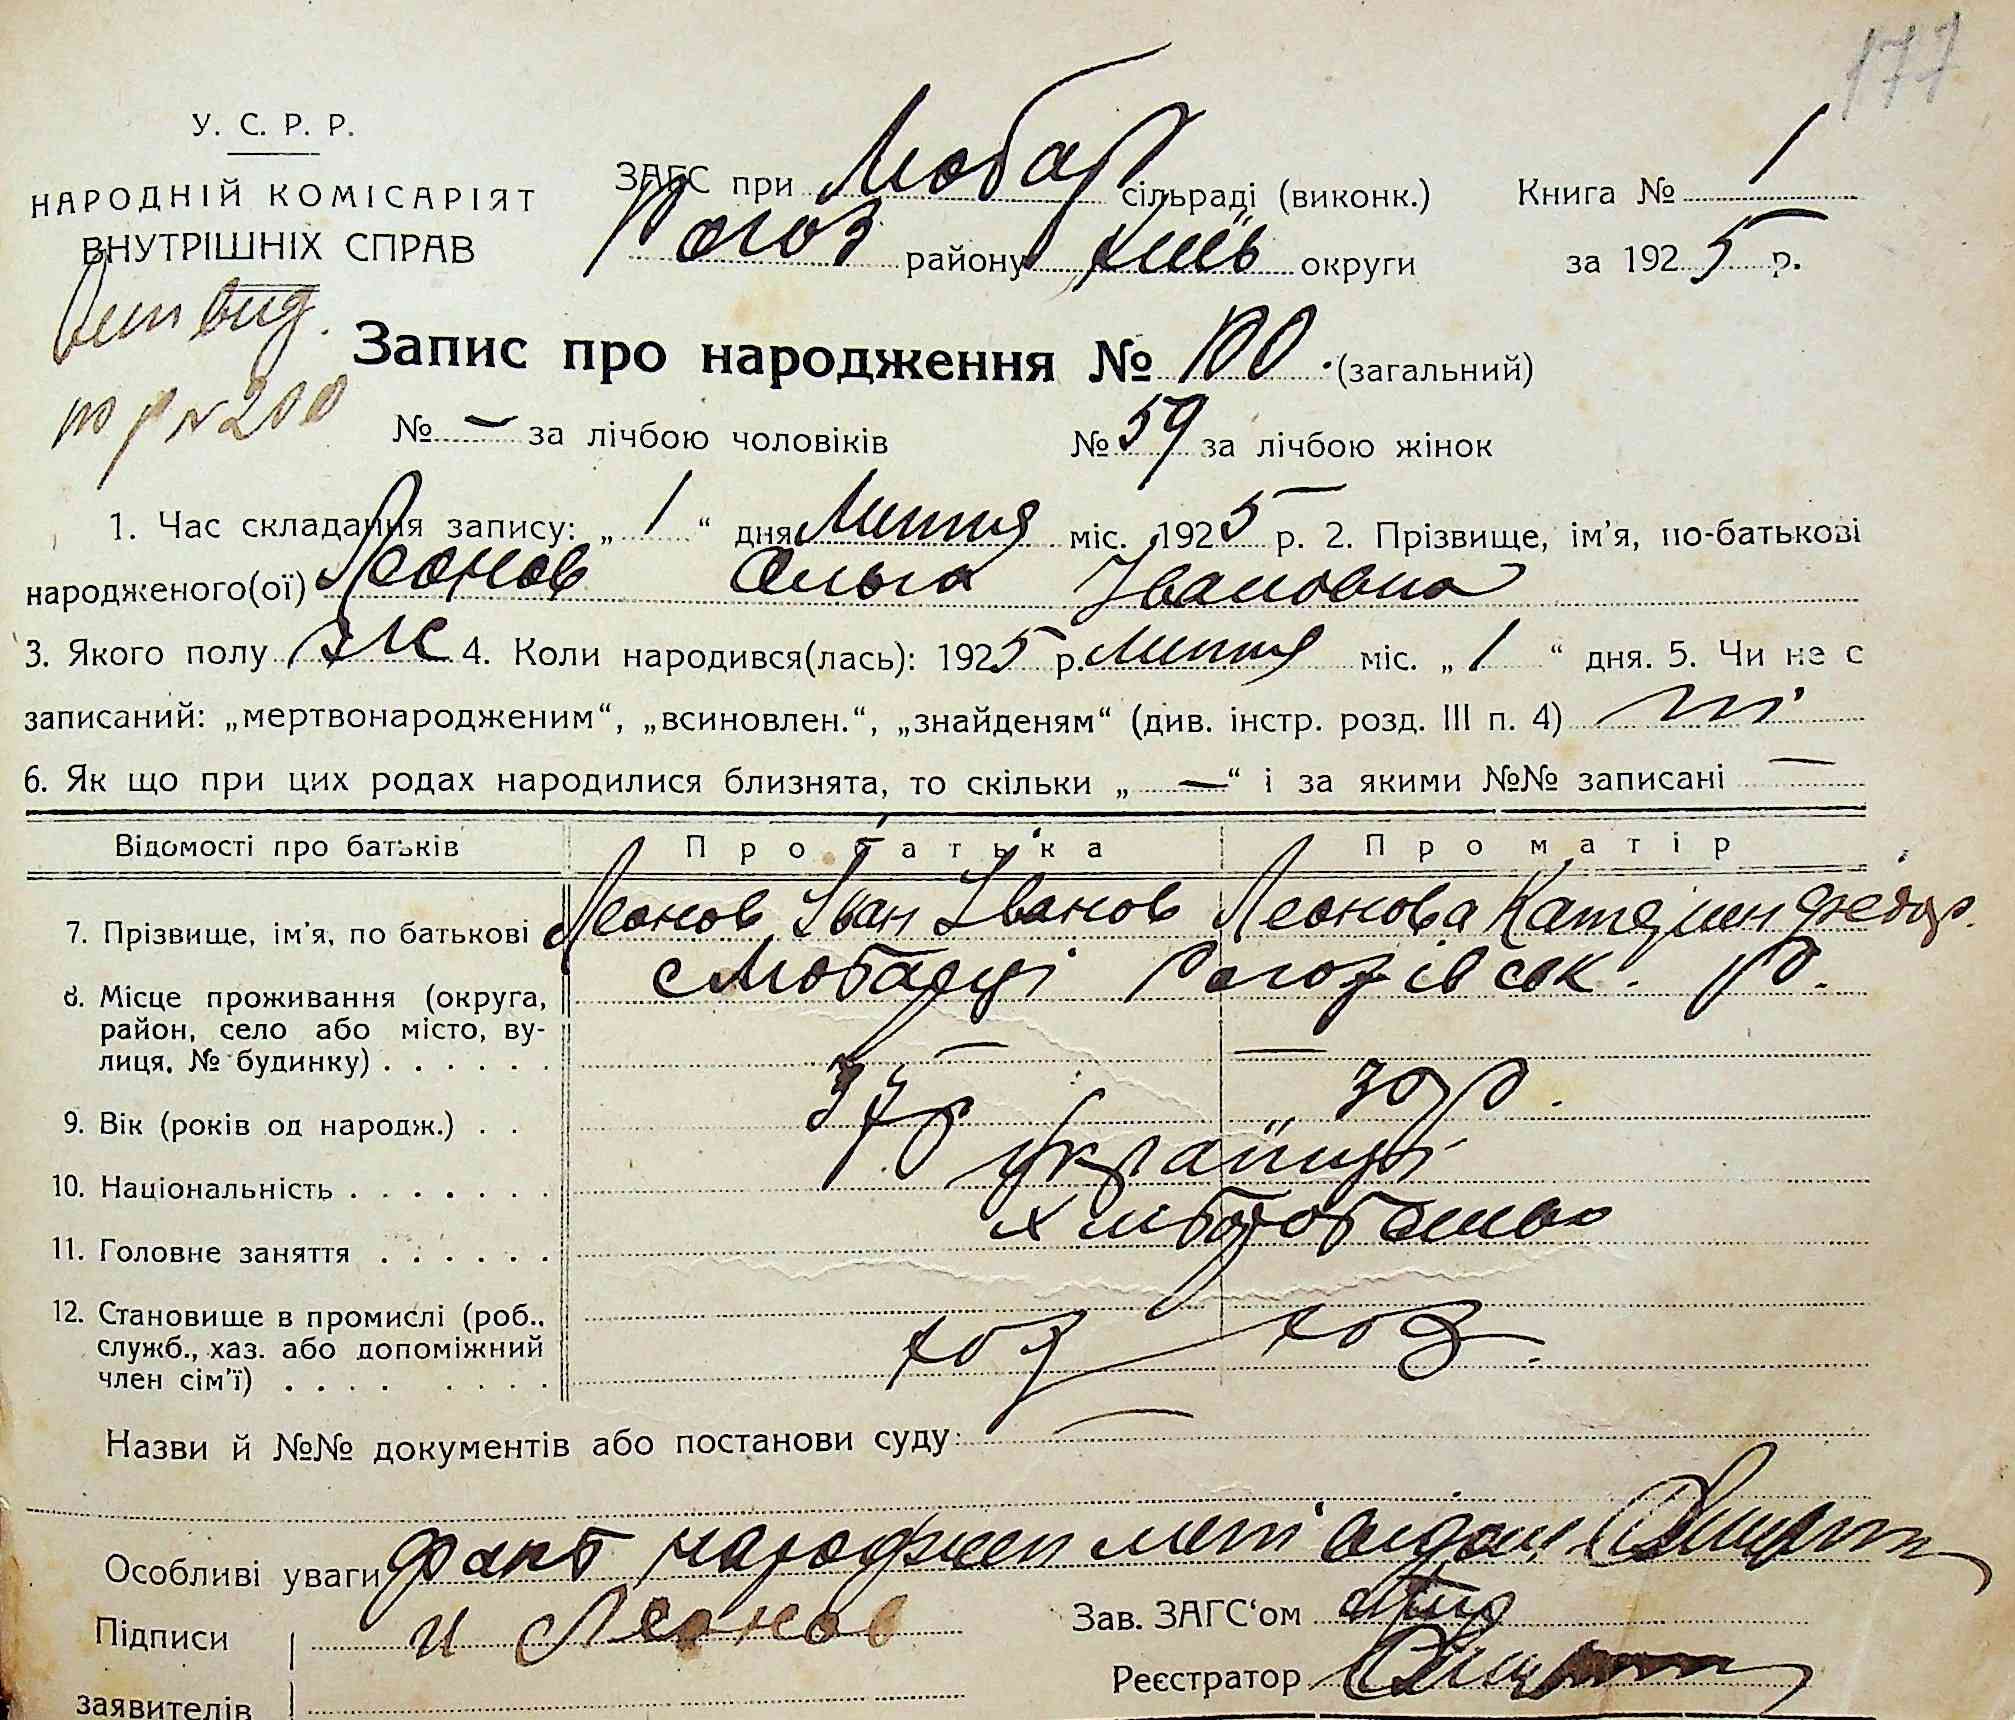 177
У. С. Р. Р.
НАРОДНІЙ КОМІСАРІЯТ
ВНУТРІШНІХ СПРАВ
ЗАГС при Любар сільраді (виконк.) Книга № 1
Рогоз району Київ округи за 1925 р.
Запис про народження № 100 (загальний)
№ 200
№ — за лічбою чоловіків № 59 за лічбою жінок
1. Час складання запису: „1“ дня Липня міс. 1925 р. 2. Прізвище, ім'я, по-батькові
народженого(ої) Леонов Ольга Івановна
3. Якого полу ж 4. Коли народився(лась): 1925 р. Липня міс. „1“ дня. 5. Чи не є
записаний: „мертвонародженим“, „всиновлен.“, „знайденям“ (див. інстр. розд. III п. 4) ні
6. Як що при цих родах народилися близнята, то скільки „—“ і за якими №№ записані —
Відомості про батьків Про батька Про матір
7. Прізвище, ім'я, по батькові Леонов Іван Іванов Леонова Катерин Федор.
8. Місце проживання (округа, с Любарці Рогозівськ. р.
район, село або місто, ву-
лиця, № будинку) . . . . . . — —
9. Вік (років од народж.) . . 37 р 30 р.
10. Національність . . . . . . . Українці
11. Головне заняття . . . . . . Хліборобство
12. Становище в промислі (роб.,
служб., хаз. або допоміжний хоз хоз.
член сім'ї) . . . . . . . .
Назви й №№ документів або постанови суду: —
Особливі уваги факт народжен
Підписи И Леонов Зав. ЗАГС'ом
Реєстратор
заявителів